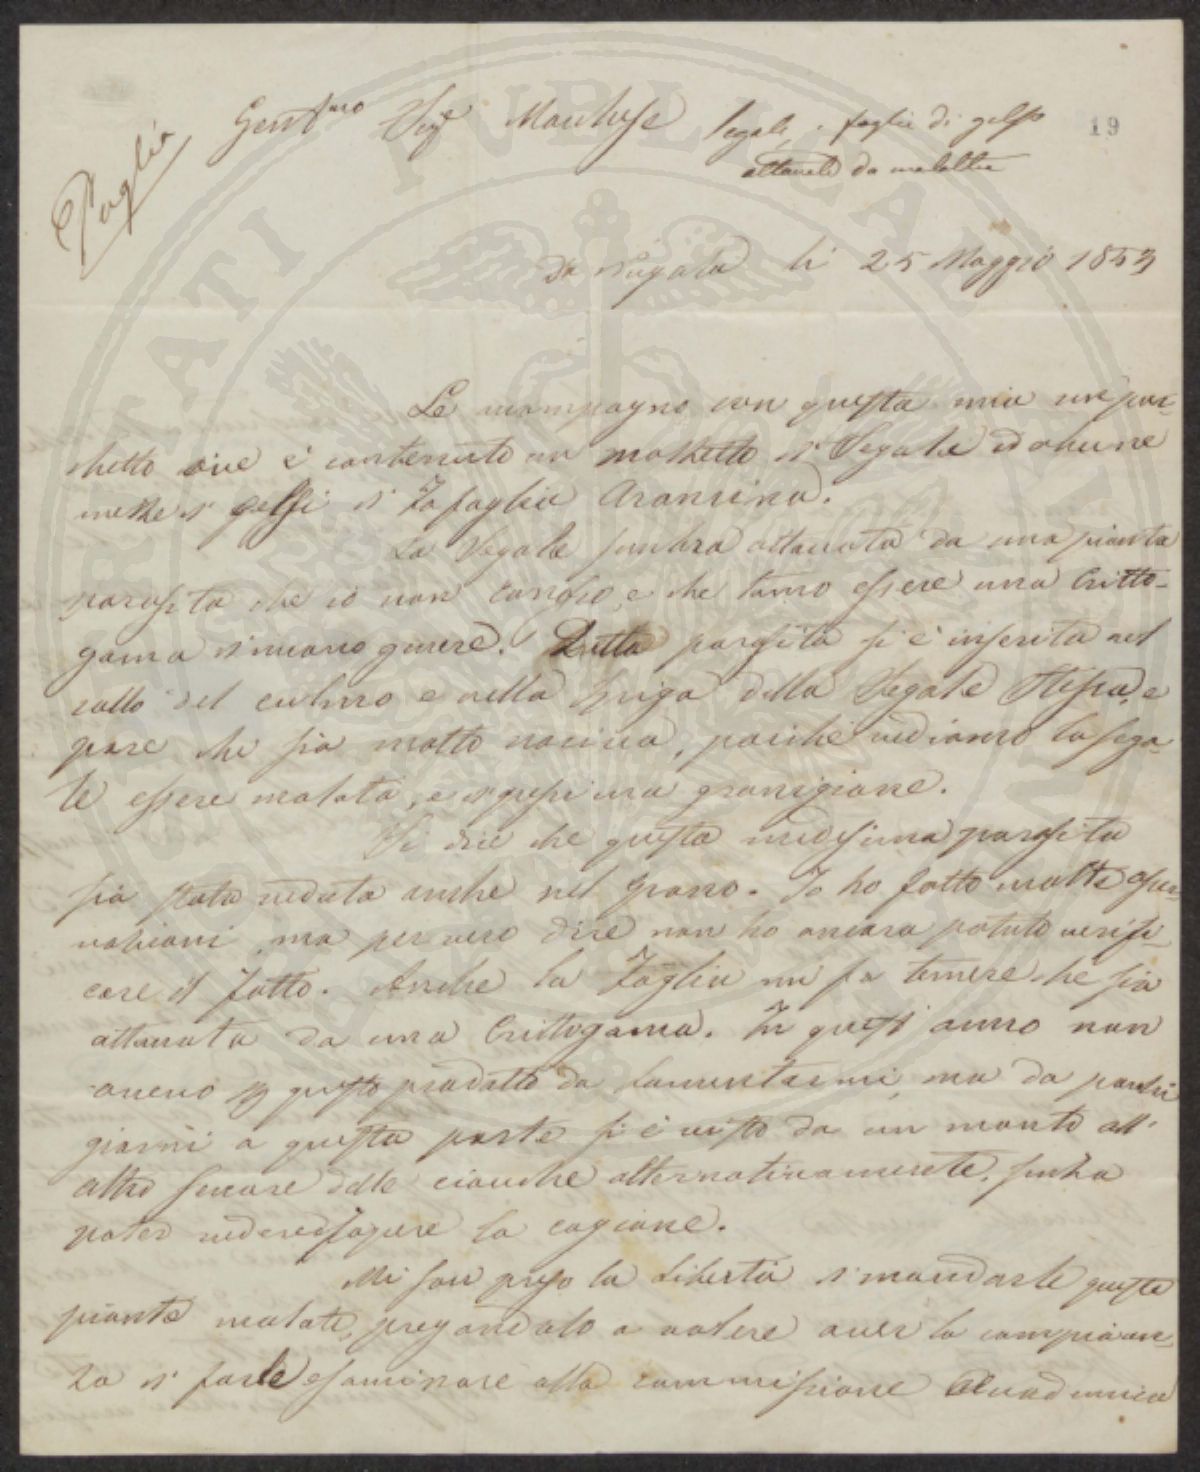 Paglia
Gent.mo Sig.e Marchese
Segale, e foglie di gelso
attaccate da malattia
19
Da Nugola li 25 Maggio 1853
Le accompagno con questa mia un pac-
chetto ove è contenuto un mazzetto di Segale ed alcune
messe di gelsi di foglia Arancina.
La Segale sembra attaccata da una pianta
parasita che io non conosco, e che temo essere una Critto-
gama di nuovo genere. Detta parasita si è inserita nel
collo del culmo e nella spiga della Segale stessa, e
pare che sia molto nociva, poiché vediamo la sega-
le essere malata, e di pessima granigione.
Si dice che questa medesima parasita
sia stata veduta anche nel Grano. Io ho fatto molte osser-
vazioni, ma per vero dire non ho ancora potuto verifi-
care il fatto. Anche la Foglia mi fa temere che sia
attaccata da una Crittogama. In quest'anno non
avevo di questo prodotto da lamentarmi, ma da pochi
giorni a questa parte si è visto da un monte all'
altro seccare delle ciocche alternativamente, senza
poter vedere e sapere la cagione.
Mi son preso la libertà di mandarle queste
piante malate, pregandolo a volere aver la compiacen-
za di farle esaminare alla commissione Accademica